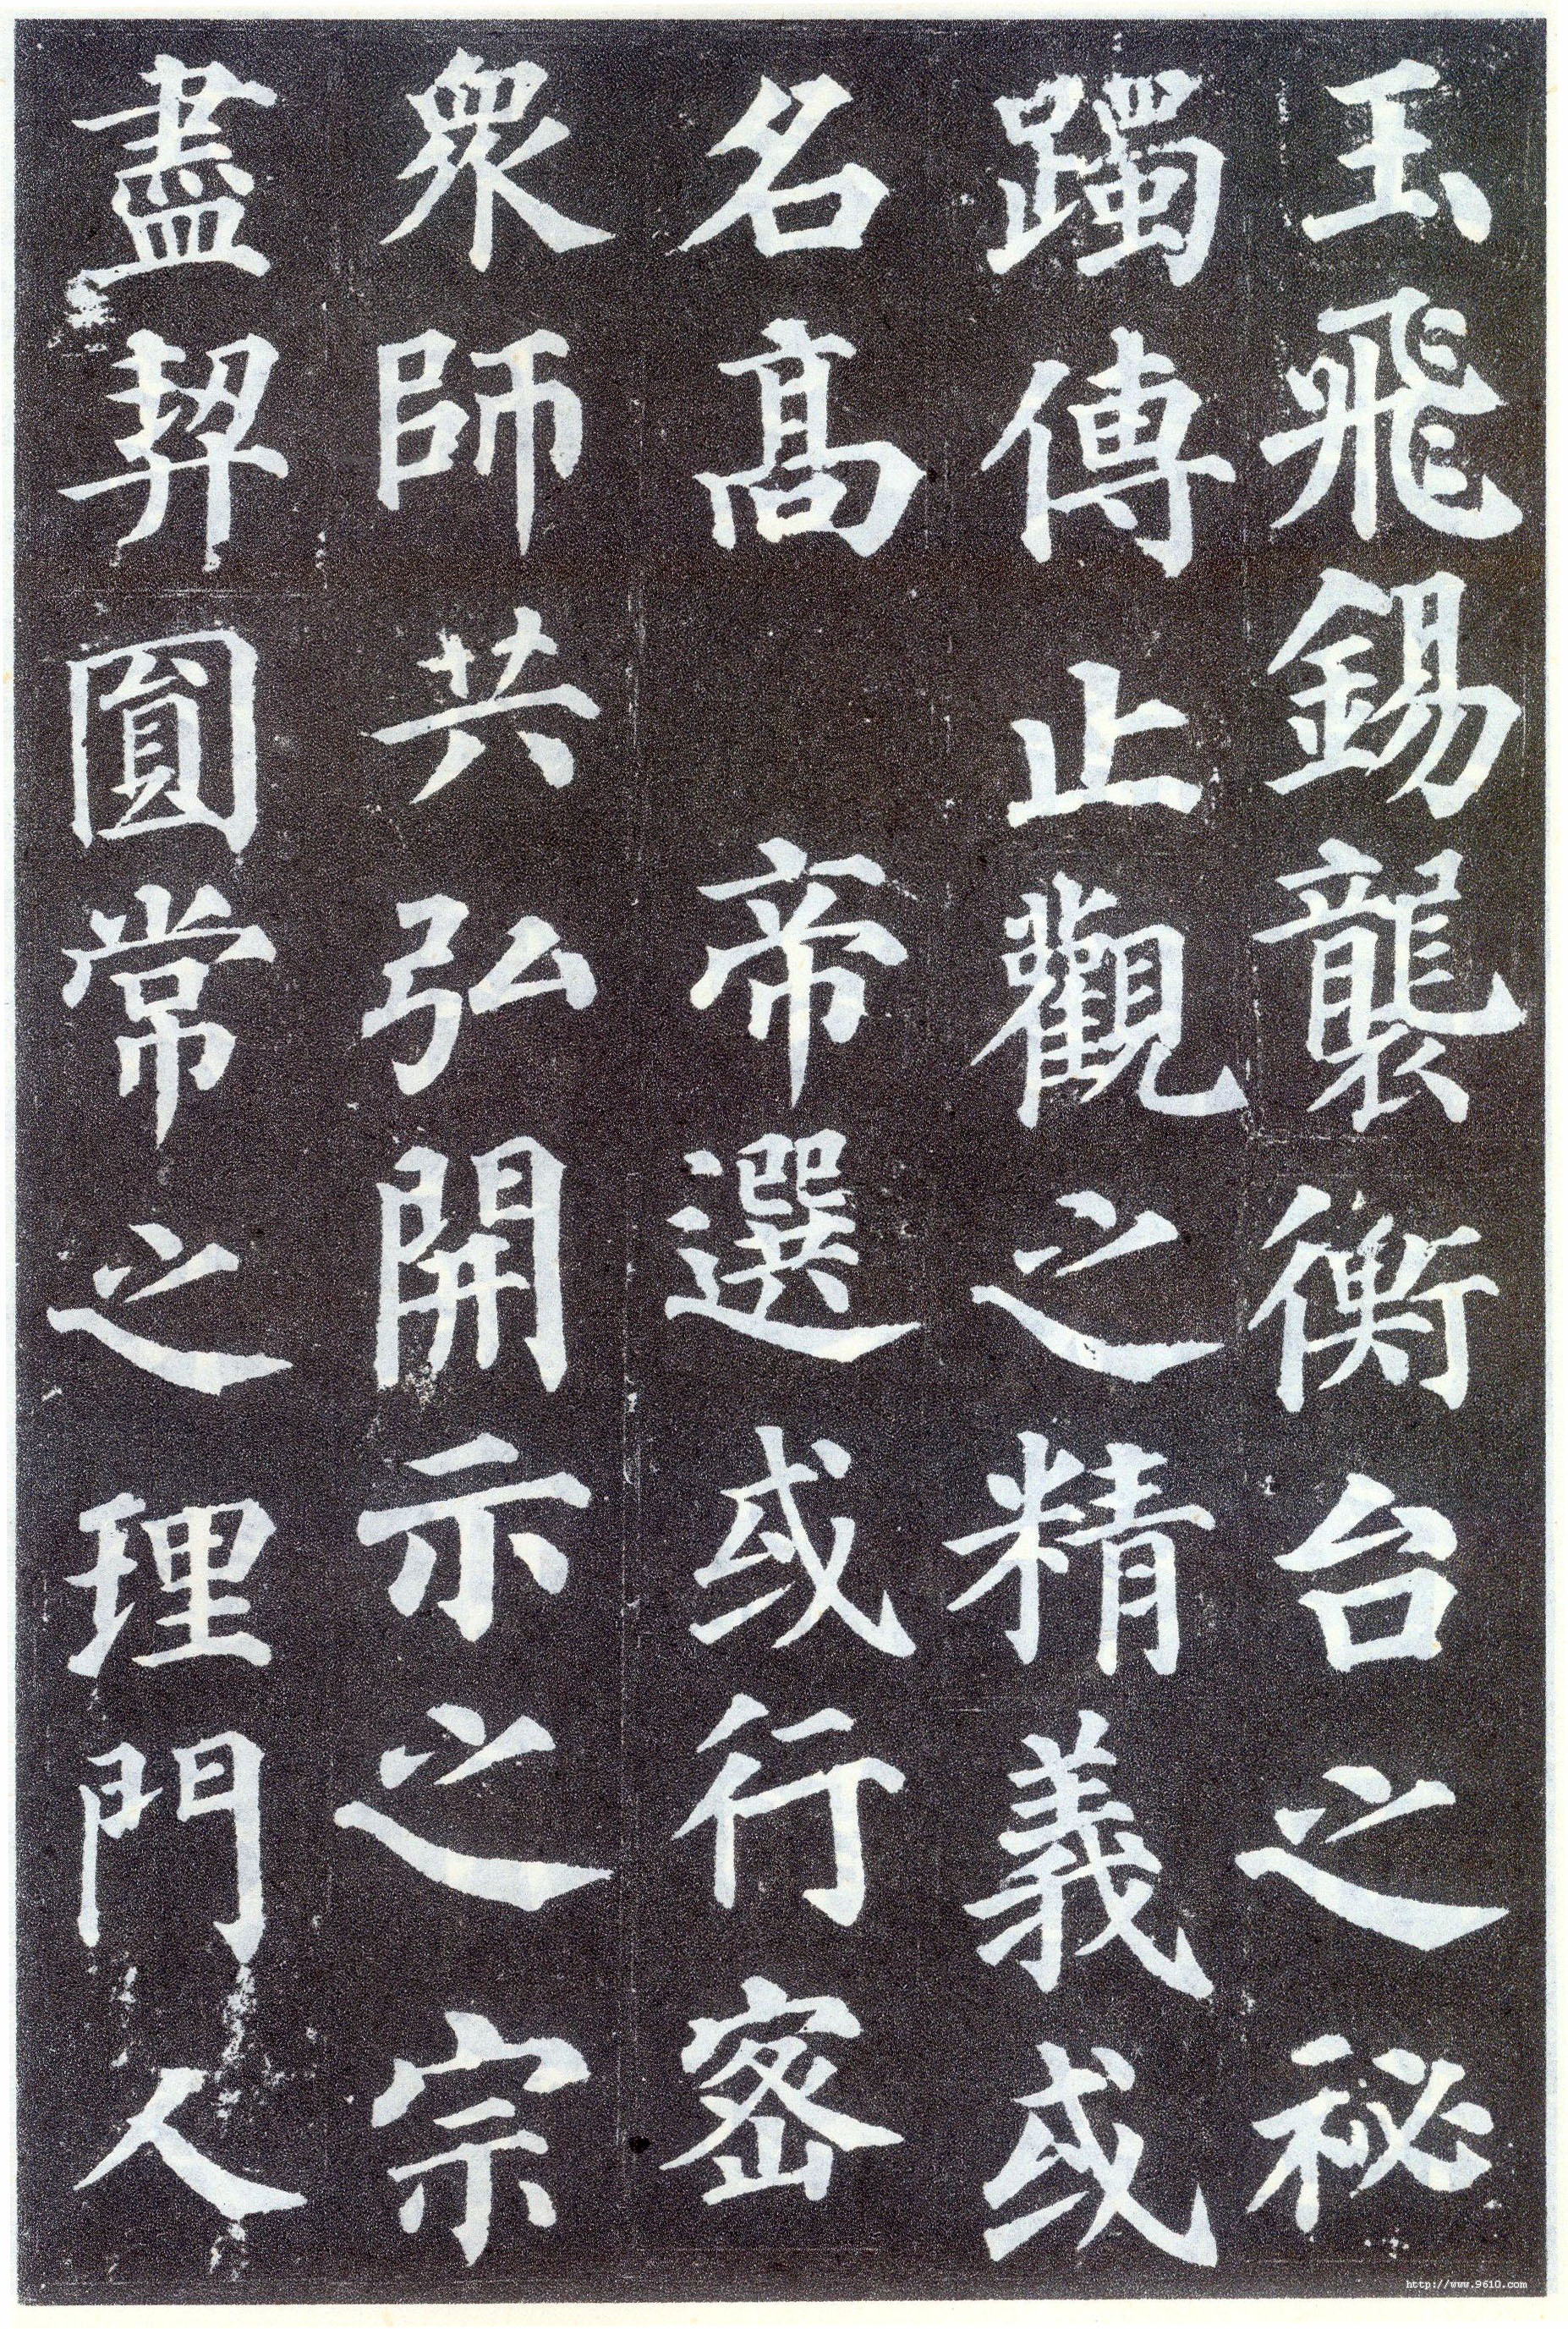 玉飛錫襲衡台之祕
躅傳止觀之精義或
名高 帝選或行密
衆師共弘開示之宗
盡契圓常之理門人
http://www.9610.com